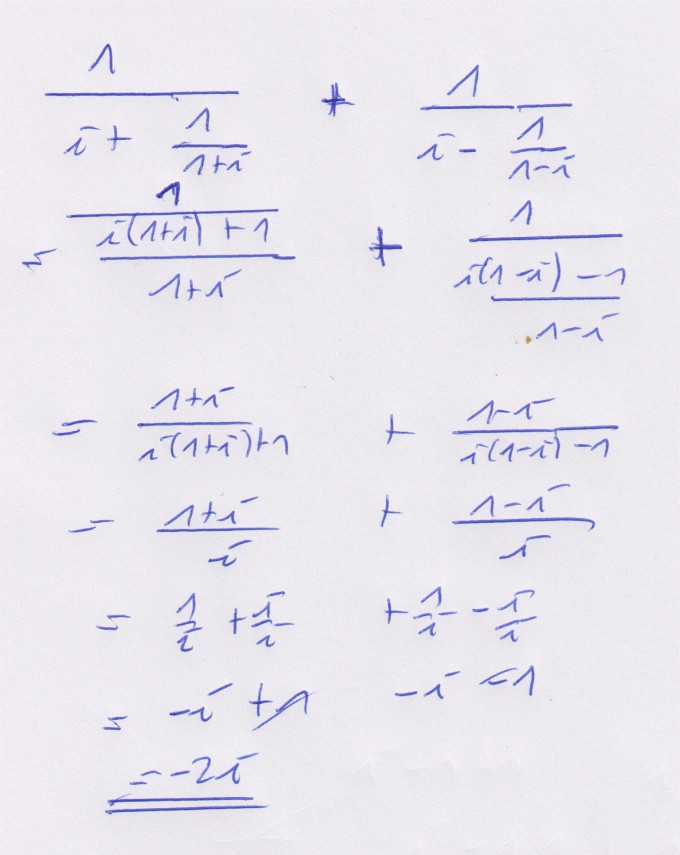 1/(i + 1/(1+i)) + 1/(i - 1/(1-i))
= 1/((i(1+i) + 1)/(1+i)) + 1/((i(1-i) - 1)/(1-i))
= (1+i)/(i(1+i)+1) + (1-i)/(i(1-i)-1)
= (1+i)/i + (1-i)/i
= 1/i + i/i + 1/i - i/i
= -i + 1 - i - 1
= -2i